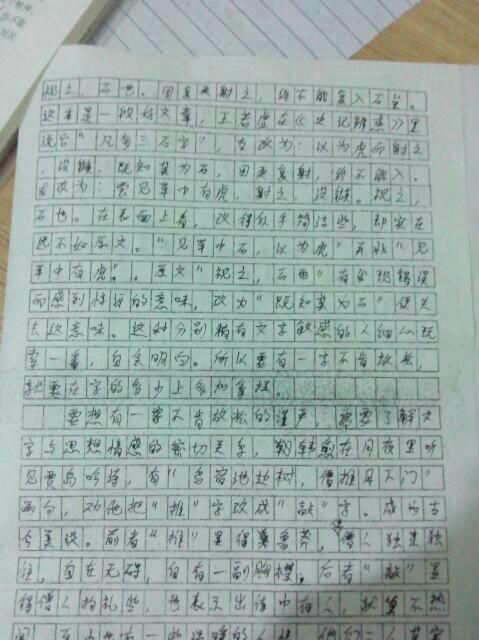 视之，石也。因复更射之，终不能复入石矣。
这本是一段好文章，王若虚在《史记辨惑》里
说它“凡多三石字”，当改为：以为虎而射之
，没镞，既知其为石，因更复射，终不能入。
或改为：尝见草中有虎，射之，没镞。视之，
石也。在表面上看，改得似乎简洁些，却实在
远不如原文。“见草中石，以为虎”并非“见
草中有虎”。原文“视之，石也”有发现错误
而感到惊讶的意味，改为“既知其为石”便失
去这意味。这对分别稍有文字敏感的人细心玩
索一番，自会明白。所以要有一字不肯放松，
就要在字的多少上多加
要想有一字不肯放松的谨严，需要了解文
字与思想情感的密切关系，韩愈在月夜里听
见贾岛吟诗，有“鸟宿池边树，僧推月下门”
两句，劝他把“推”字改成“敲”字。成为古
今美谈。前者“推”显得鲁莽，僧人独来独
往，自在无碍，自有一副胸襟。后者“敲”显
得僧人拘礼些，也表示出寺中有人，就算不热
闹，至少也有一些温暖的人